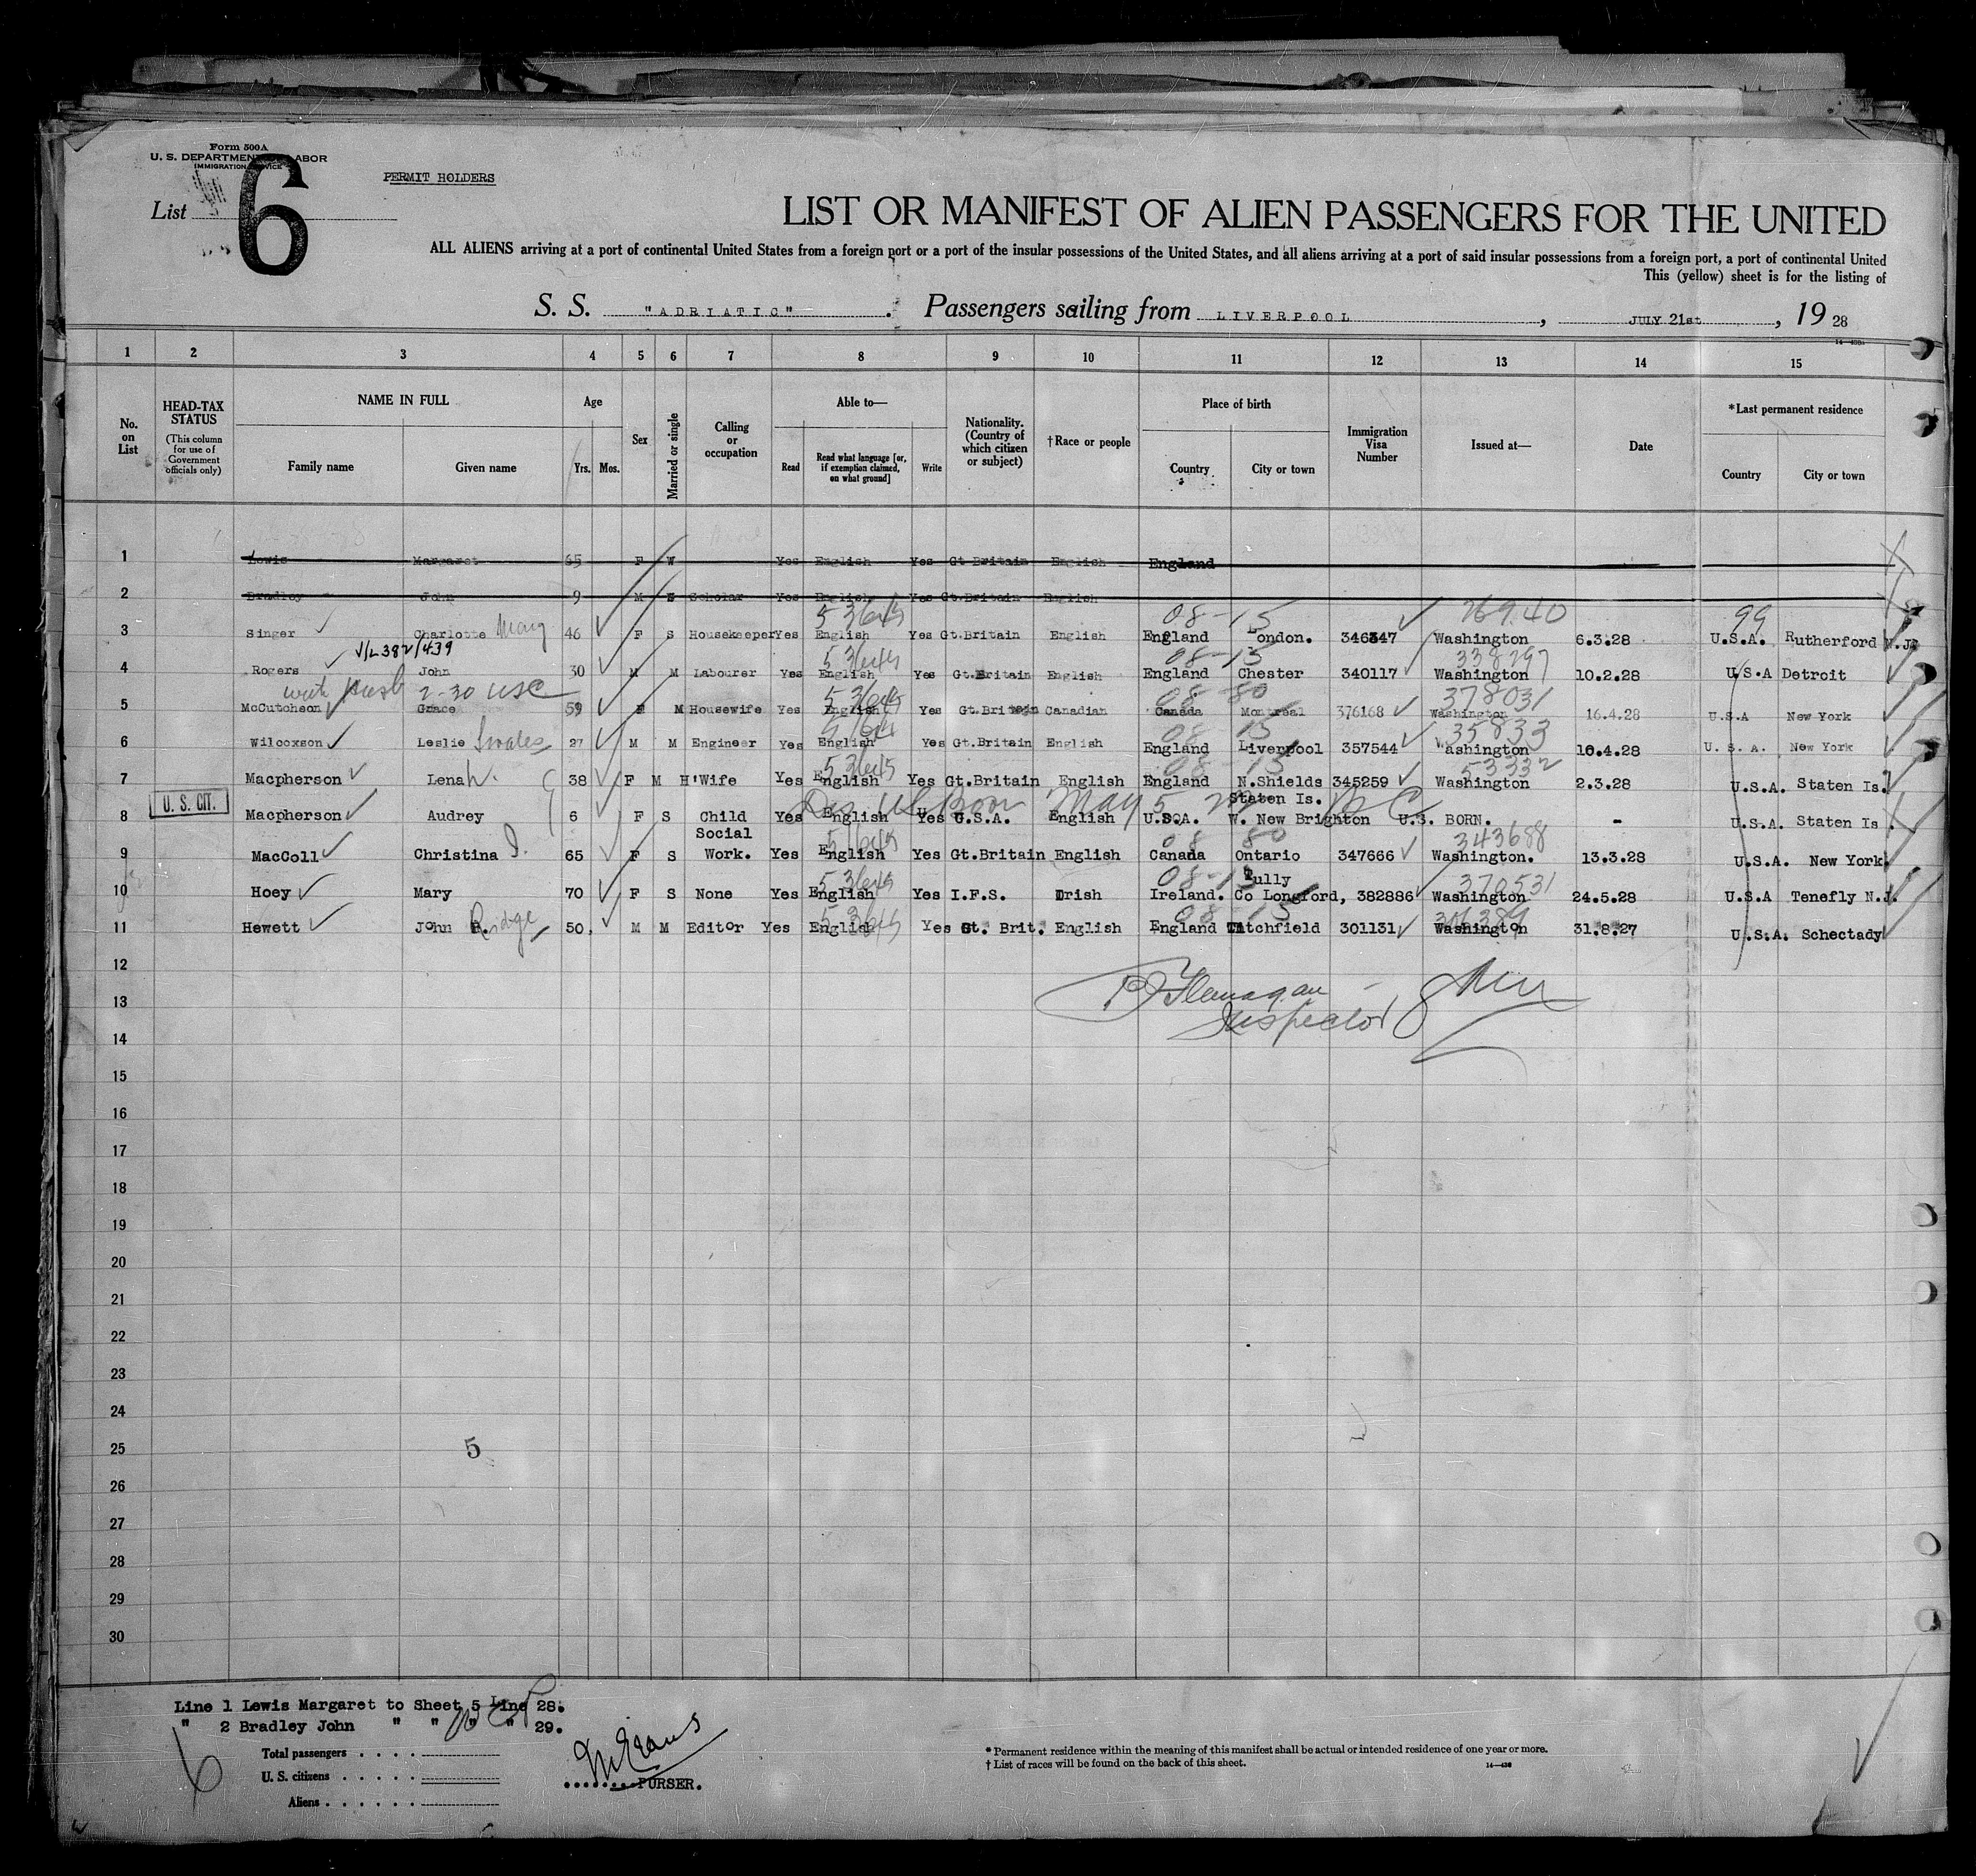 Form 500A
U. S. DEPARTMENT LABOR
IMMIGRATION
PERMIT HOLDERS
List 6
LIST OR MANIFEST OF ALIEN PASSENGERS FOR THE UNITED
ALL ALIENS arriving at a port of continental United States from a foreign port or a port of the insular possessions of the United States, and all aliens arriving at a port of said insular possessions from a foreign port, a port of continental United
This (yellow) sheet is for the listing of
S. S. "ADRIATIC" . Passengers sailing from LIVERPOOL , JULY 21st , 19 28
1 2 3 4 5 6 7 8 9 10 11 12 13 14 15
No. on List
HEAD-TAX STATUS (This column for use of Government officials only)
NAME IN FULL
Family name Given name
Age
Yrs. Mos.
Sex
Married or single
Calling or occupation
Able to—
Read Read what language [or, if exemption claimed, on what ground] Write
Nationality. (Country of which citizen or subject)
†Race or people
Place of birth
Country City or town
Immigration Visa Number
Issued at—
Date
*Last permanent residence
Country City or town
1 Lewis Margaret 65 F W Yes English Yes Gt.Britain English England
2 Bradley John 9 M S Scholar Yes English Yes Gt.Britain English
53645 08-15 76940 99
3 Singer Charlotte Mary 46 F S Housekeeper Yes English Yes Gt.Britain English England London. 346347 Washington 6.3.28 U.S.A. Rutherford N.J.
V/L 382/439 53645 08-15 338297
4 Rogers John 30 M M Labourer Yes English Yes Gt.Britain English England Chester 340117 Washington 10.2.28 U.S.A Detroit
with husb 2-30 USC 53645 08 80 378031
5 McCutcheon Grace 59 F M Housewife Yes English Yes Gt.Britain Canadian Canada Montreal 376168 Washington 16.4.28 U.S.A New York
08 15 35833
6 Wilcoxson Leslie 27 M M Engineer Yes English Yes Gt.Britain English England Liverpool 357544 Washington 10.4.28 U.S.A. New York
53645 08-15 53332
7 Macpherson Lena W. 38 F M H'Wife Yes English Yes Gt.Britain English England N.Shields 345259 Washington 2.3.28 U.S.A. Staten Is.
U. S. CIT. Born May 5 Staten Is.
8 Macpherson Audrey 6 F S Child Yes English Yes U.S.A. English U.S.A. W. New Brighton U.S. BORN. - U.S.A. Staten Is.
53645 08 80 343688
9 MacColl Christina I. 65 F S Social Work. Yes English Yes Gt.Britain English Canada Ontario 347666 Washington. 13.3.28 U.S.A. New York
53645 08-15 370531
10 Hoey Mary 70 F S None Yes English Yes I.F.S. Irish Ireland. Tully Co Longford, 382886 Washington 24.5.28 U.S.A Tenefly N.J.
53645 08-15
11 Hewett John R. Ridge 50. M M Editor Yes English Yes Gt. Brit. English England Titchfield 301131 Washington 31.8.27 U.S.A. Schectady
12
Flanagan
13
Inspector
14
15
16
17
18
19
20
21
22
23
24
5
25
26
27
28
29
30
Line 1 Lewis Margaret to Sheet 5 Line 28.
" 2 Bradley John " " " " 29.
Total passengers . . . .
U. S. citizens . . . . .
Aliens . . . . . .
PURSER.
6
* Permanent residence within the meaning of this manifest shall be actual or intended residence of one year or more.
† List of races will be found on the back of this sheet.